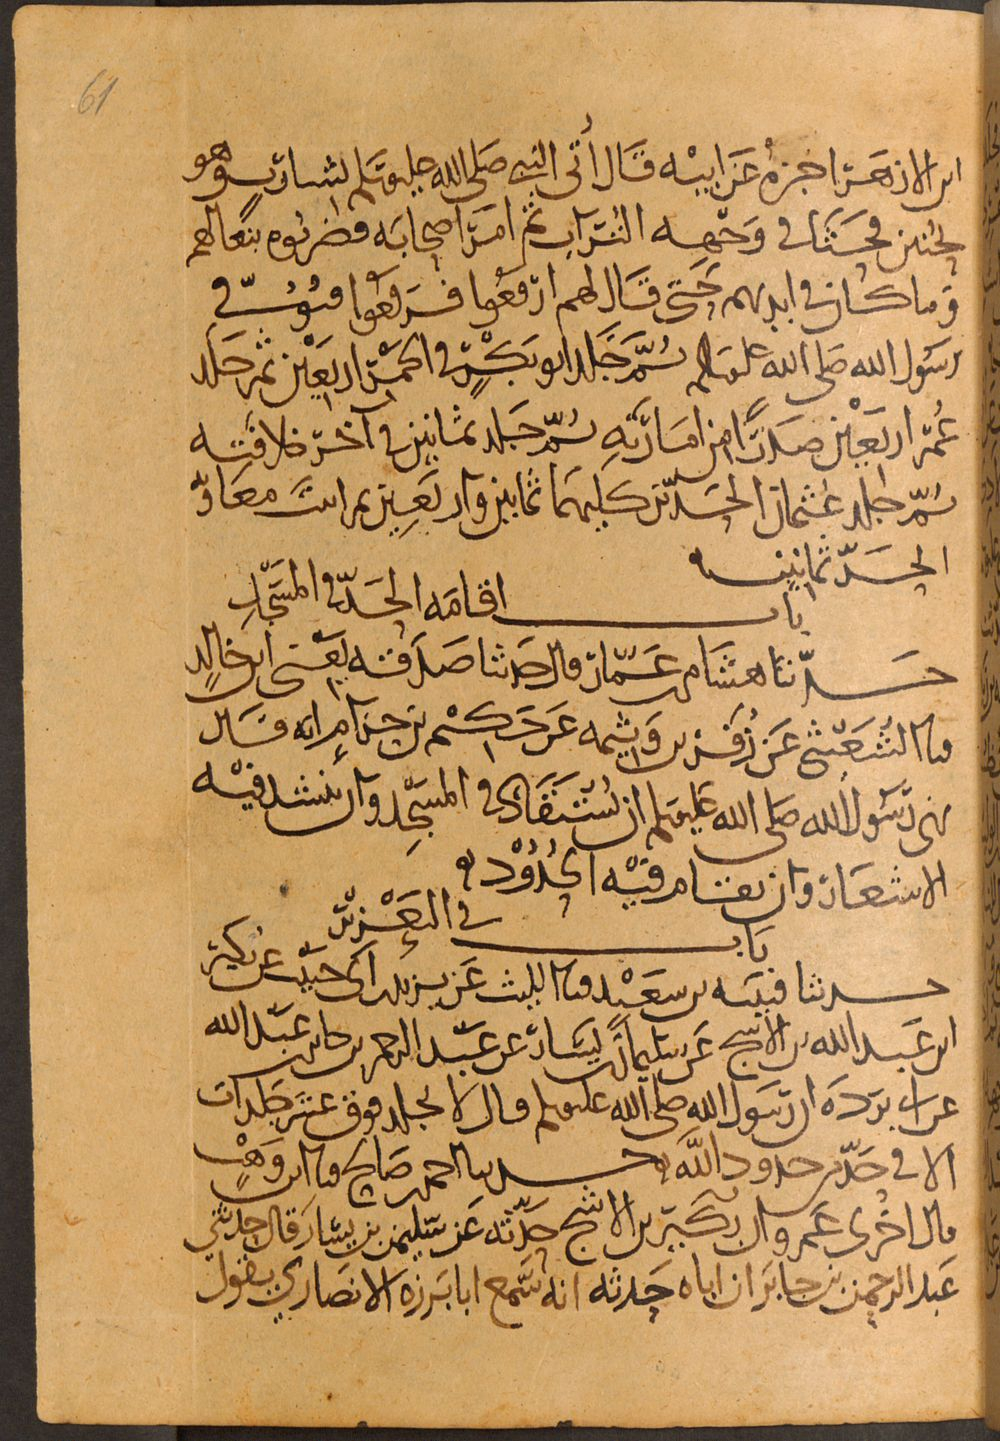 61
ابن الازهر اخبره عن ابيه قال أتى النبي صلى الله عليه وسلم بشارب وهو
بحنين فحثا في وجهه التراب ثم امر اصحابه فضربوه بنعالهم
وما كان في ايديهم حتى قال لهم ارفعوا فرفعوا فتوفي
رسول الله صلى الله عليه وسلم ثم جلد ابو بكر في الخمر اربعين ثم جلد
عمر اربعين صدرًا من امارته ثم جلد ثمانين في آخر خلافته
ثم جلد عثمان الحدين كليهما ثمانين واربعين ثم اثبت معاوية
الحد ثمانين
باب اقامة الحد في المسجد
حدثنا هشام بن عمار قال حدثنا صدقة يعني ابن خالد
نا الشعيثي عن زفر بن وثيمه عن حكيم بن حزام انه قال
نهى رسول الله صلى الله عليه وسلم ان يستقاد في المسجد وان ينشد فيه
الاشعار وان يقام فيه الحدود
باب في التعزير
حدثنا قتيبه بن سعيد نا الليث عن يزيد بن ابي حبيب عن بكير
ابن عبد الله بن الاشج عن سليمان بن يسار عن عبد الرحمن بن جابر بن عبد الله
عن ابي بردة ان رسول الله صلى الله عليه وسلم قال لا يجلد فوق عشر جلدات
الا في حد من حدود الله حدثنا احمد بن صالح نا ابن وهب
قال اخبرني عمرو ان بكير بن الاشج حدثه عن سليمن بن يسار قال حدثني
عبد الرحمن بن جابر ان اباه حدثه انه سمع ابا برزه الانصاري يقول